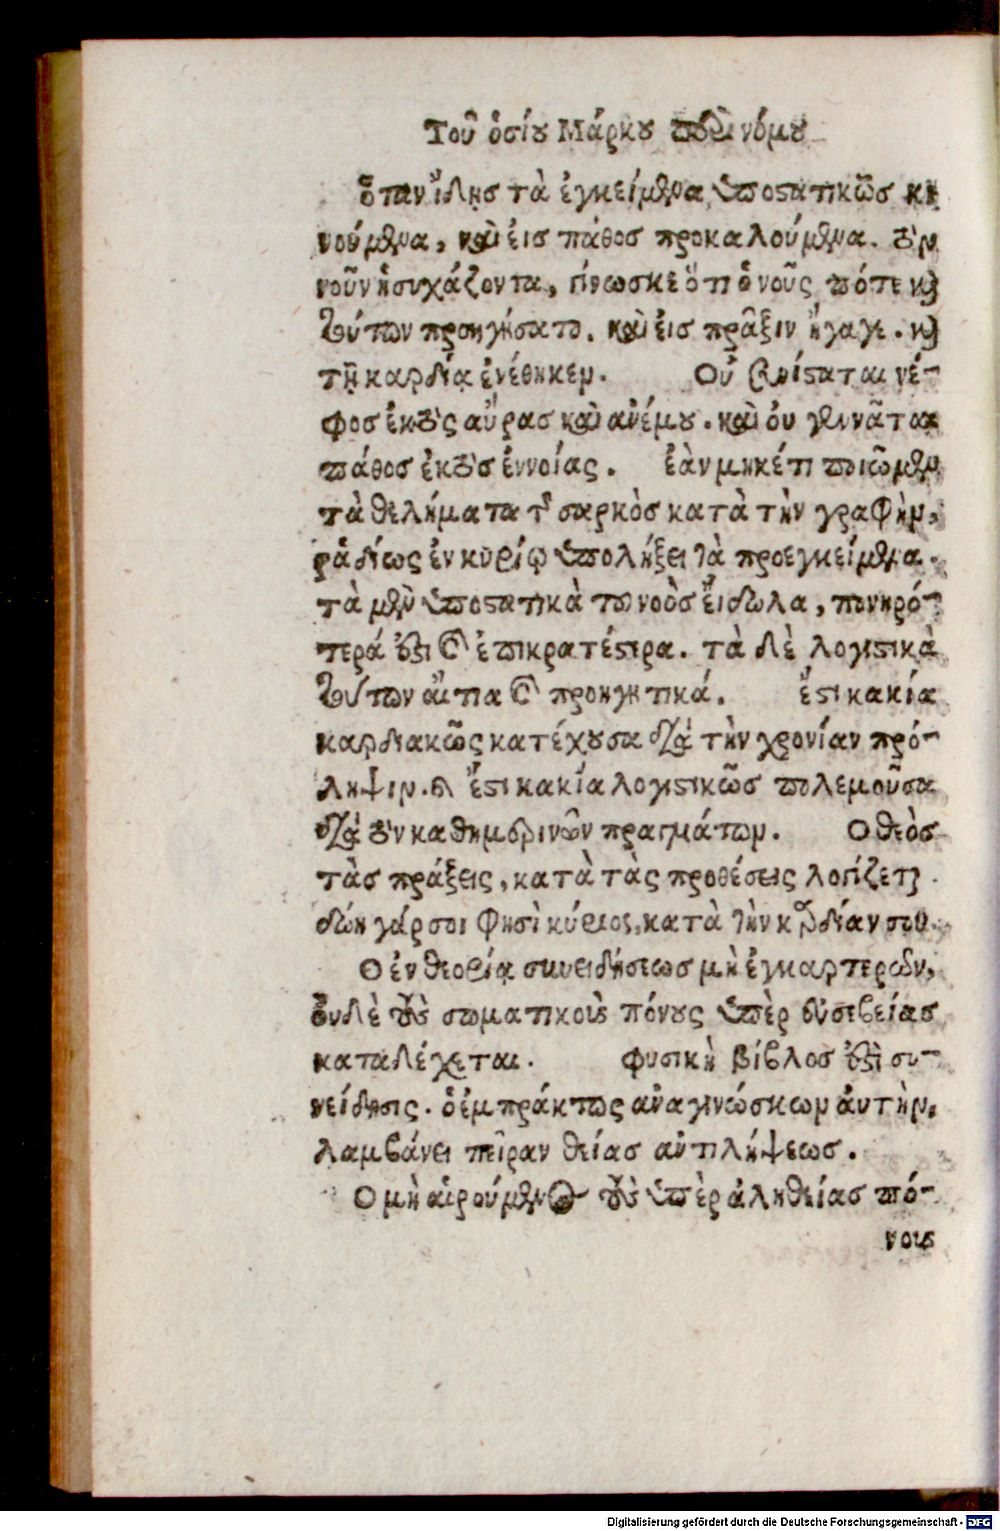 Τοῦ ὁσίου Μάρκου περὶ νόμου
ὅταν ἴδῃς τὰ ἐγκείμενα ὑποστατικῶς κι
νούμενα, καὶ εἰς πάθος προκαλούμενα. τὸν
νοῦν ἡσυχάζοντα, γίνωσκε ὅτι ὁ νοῦς ποτε καὶ
τούτων προηγήσατο. καὶ εἰς πρᾶξιν ἤγαγε. καὶ
τῇ καρδίᾳ ἐνέθηκεν. Οὐ συνίσταται νέ-
φος ἐκτὸς αὔρας καὶ ἀνέμου. καὶ οὐ γεννᾶται
πάθος ἐκτὸς ἐννοίας. ἐὰν μηκέτι ποιῶμεν
τὰ θελήματα τῆς σαρκὸς κατὰ τὴν γραφὴν,
ῥᾳδίως ἐν κυρίῳ ὑπολήξει τὰ προεγκείμενα.
τὰ μὲν ὑποστατικὰ τοῦ νοὸς εἴδωλα, πονηρό-
τερά ἐστι καὶ ἐπικρατέστερα. τὰ δὲ λογιστικὰ
τούτων αἴτια καὶ προηγητικά. ἔστι κακία
καρδιακῶς κατέχουσα διὰ τὴν χρονίαν πρό-
ληψιν. καὶ ἔστι κακία λογιστικῶς πολεμοῦσα
διὰ τῶν καθημερινῶν πραγμάτων. Ο θεὸς
τὰς πράξεις, κατὰ τὰς προθέσεις λογίζεται.
δώῃ γάρ σοι φησὶ κύριος, κατὰ τὴν καρδίαν σου.
Ο ἐν θεορίᾳ συνειδήσεως μὴ ἐγκαρτερῶν,
οὐδὲ τοὺς σωματικοὺς πόνους ὑπὲρ εὐσεβείας
καταδέχεται. φυσικὴ βίβλος ἐστὶ συ-
νείδησις. ὁ ἐμπράκτως ἀναγινώσκων ἀυτὴν,
λαμβάνει πεῖραν θείας ἀντιλήψεως.
Ο μὴ αἱρούμενος τοὺς ὑπὲρ ἀληθείας πό-
νους
Digitalisierung gefördert durch die Deutsche Forschungsgemeinschaft - DFG